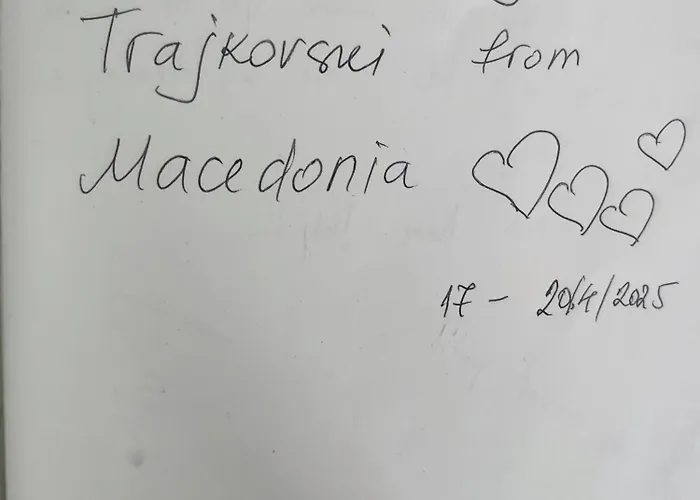 Trajkovski from
Macedonia
17 - 20/4/2025